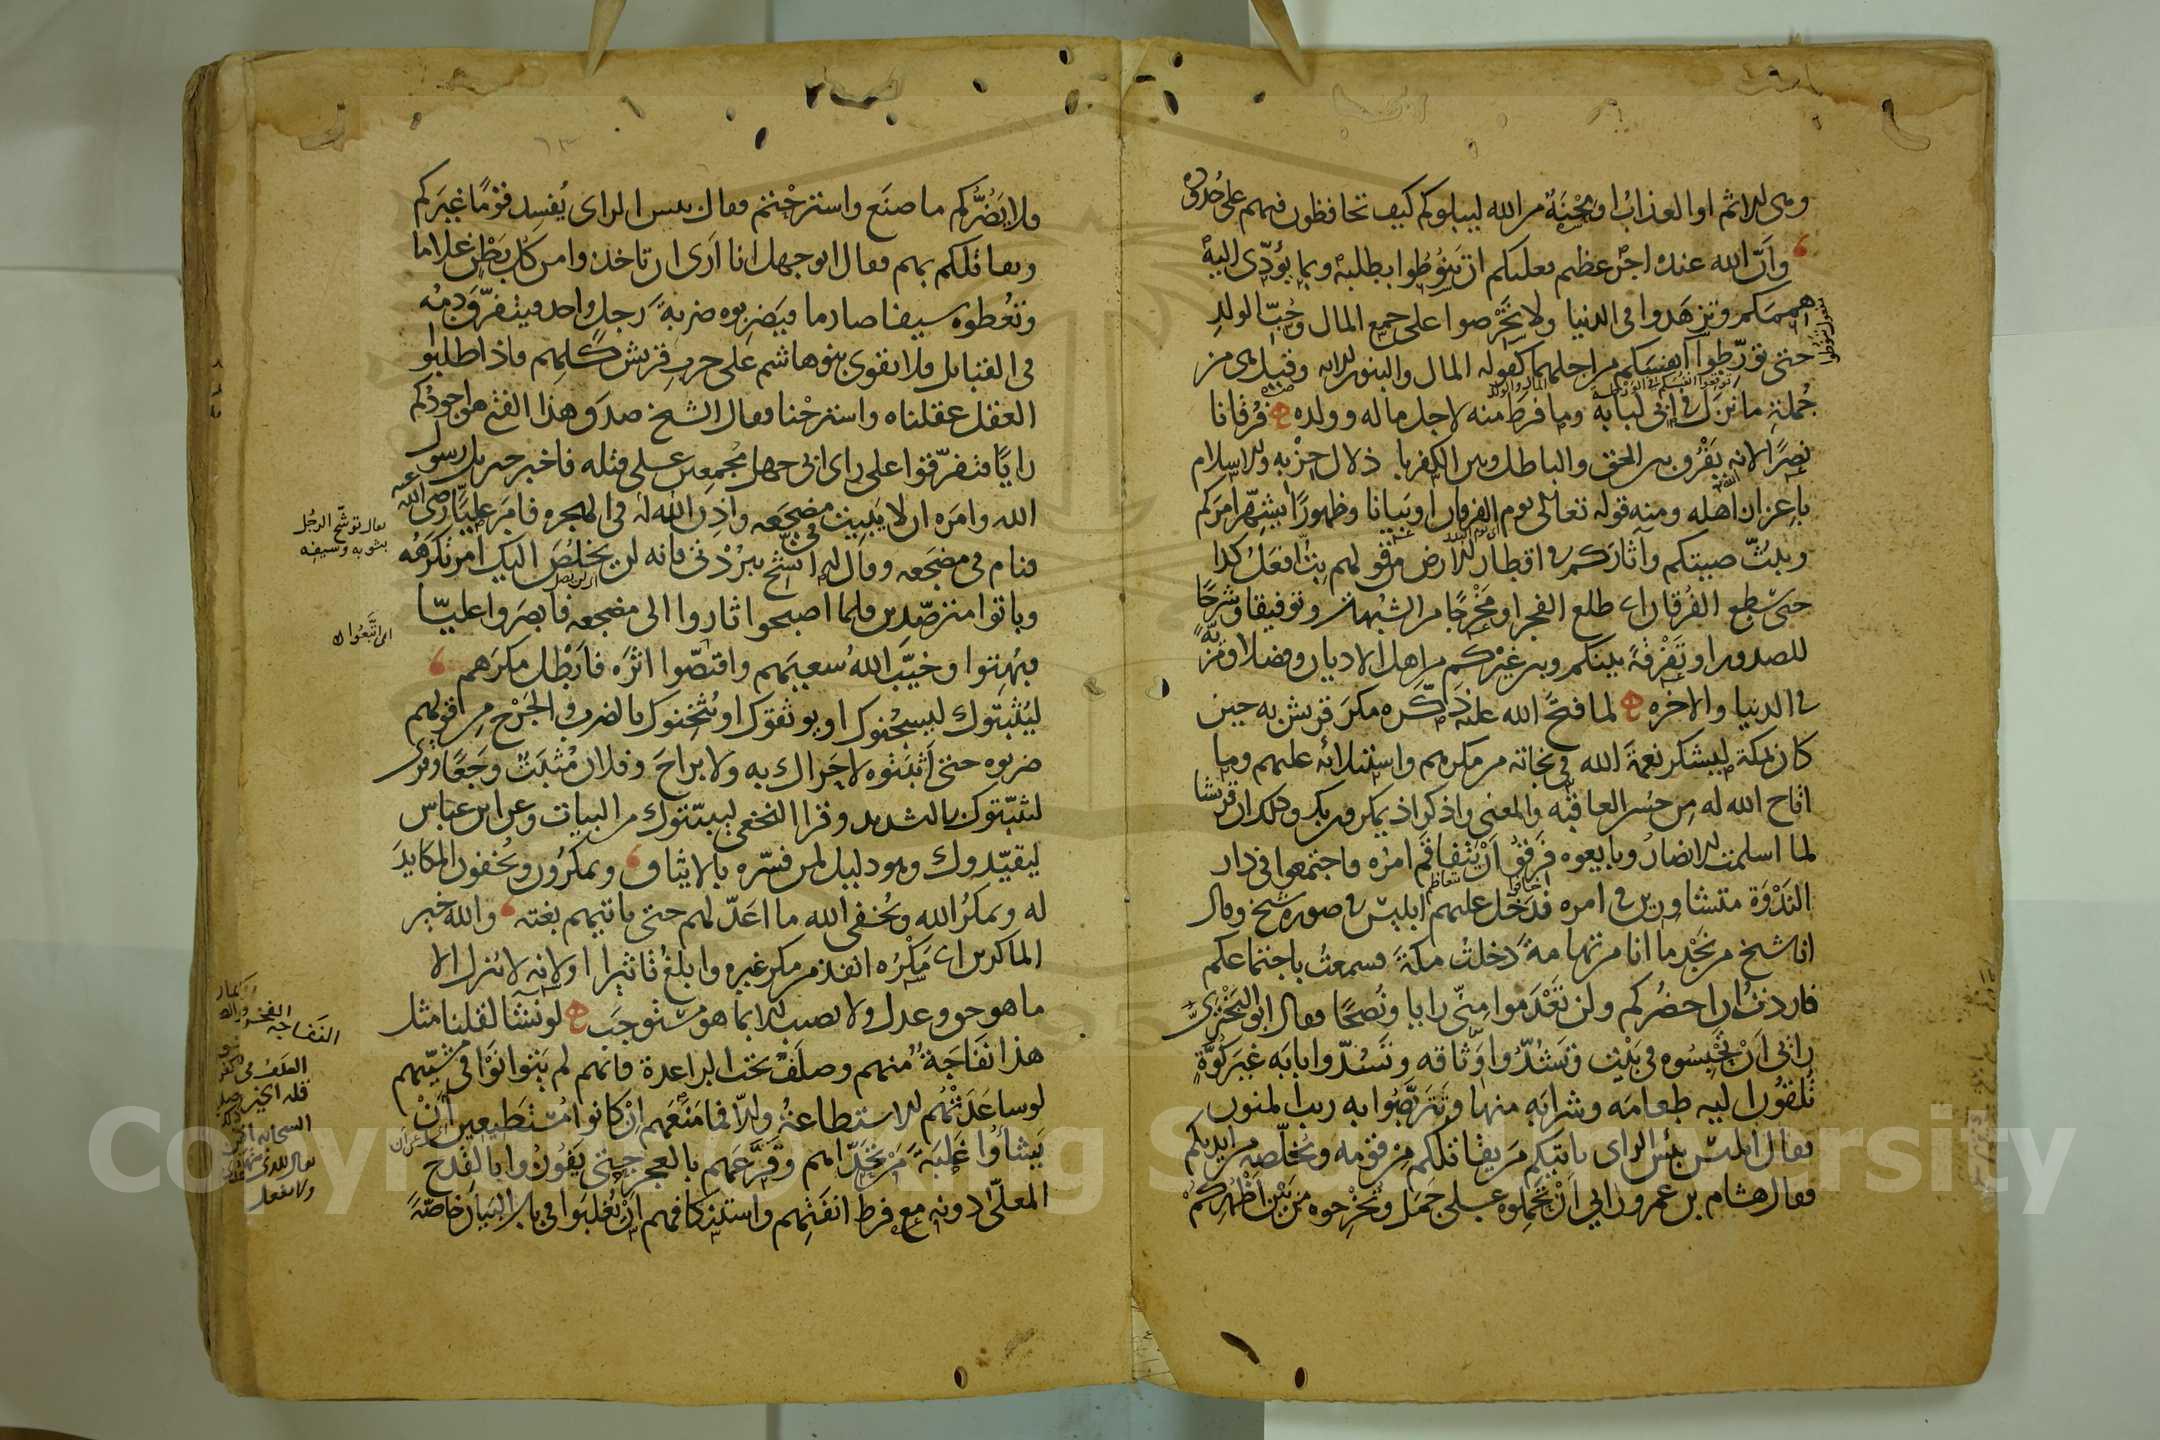 وهى الاثم او العذاب او محنة من الله ليبلوكم كيف تحافظون فيهم على حدوده
وأنّ الله عنده اجر عظيم فعليكم ان تنوطوا بطلبه وبما يؤدّى اليه
هممكم وتزهدوا فى الدنيا ولا تحرصوا على جمع المال وحُبّ الولدِ
حتى تورّطوا انفسكم من اجلهما كقوله المال والبنون الآيه وقيل هى من
جُملة ما نزل فى ابى لبابه وما فرط منه لاجل ماله وولده فُرقانا
نصرًا لانه يَفْرُق بين الحق والباطل وبين الكفر باذلال حزبه والاسلام
باعزاز اهله ومنه قوله تعالى يوم الفرقان او بَيانا وظهورًا يشهّر امركم
ويبُثّ صيتكم وآثاركم فى اقطار الارض من قولهم بتّ افعَل كذا
حتى سَطع الفُرقان اى طلع الفجر او مخْرجًا من الشبهات وتوفيقا وشرحًا
للصدور او تَفْرِقةً بينكم وبين غيركم من اهل الاديان وفضلا ومزيّةً
فى الدنيا والاخره لما فتحَ الله عليه ذكّره مكرَ قريش به حين
كان بمكة ليشكر نعمةَ الله فى نجاته من مكرهم واستيلائه عليهم وما
اتاح الله له مِن حُسن العاقبه والمعنى واذكر اذ يمكرون بك وذلك ان قريشا
لما اسلمت الانصارُ وبايعوه فَرِقوُا أنْ يتفاقَم امرُه فاجتمعوا فى دار
النَدْوَة متشاورين فى امره فدخل عليهم ابليس فى صورة شيخ وقال
انا شيخ من نجْد ما انا من تهامةَ دخلتُ مكةَ فسمعتُ باجتماعكم
فاردتُ ان احضُركم ولن تَعْدَموا منّى رايا ونُصحًا فقال ابو البَخْترىّ
رائى أنْ تَحْبِسُوه فى بَيْتٍ وتَشُدّوا وَثاقه وتَسُدّوا بابَه غيرَ كُوّةٍ
تُلقُون اليه طعامَه وشرابَه منها وتتَربّصُوا به ريب المنون
فقال ابليس بئس الراى ياتيكم مَن يقاتلكم مِن قومه ويُخلّصه من ايديكم
فقال هشام بن عمرو رائى أنْ تَحملوه على جَمَل وتُخْرِجوه مِن بَيْن أظْهُركم
ولا يَضُرُّكم ما صنَع واسترحْتم فقال بئس الراى يُفسِد قومًا غيرَكم
ويقاتلكم بهم فقال ابو جهل انا أرَى ان تاخذوا من كل بَطْن غلاما
وتُعْطوه سيفا صارما فيَضربوه ضربةَ رَجلٍ واحد فيتفرّق دمُه
فى القبايل فلا يقوى بنو هاشم على حربِ قريش كلِهم فاذا طلبوا
العقل عقلناه واسترحْنا فقال الشيخ صدق هذا الفتى هو اجودُكم
رايًا فتفرّقوا على راى ابى جهل مُجمِعين على قتله فاخبر جبريل رسولَ
الله وامَره ان لا يَبيِت فى مضجَعه واذِن الله له فى الهجره فامَر عليًّا رضى الله عنه
فنام فى مضجَعه وقال له اتشح ببُردتى فانه لن يخلُصَ اليك امر تكرَهُه
وباتوا مترصّدين فلما اصبحوا ثاروا الى مضجعه فابصَروا عليّا
فبُهِتوا وخيّبَ اللهُ سعيَهم واقتصّوا اثرَه فابْطل مكرَهم
ليُثْبتوك ليسجُنوك او يوثقوك او يُثخِنوك بالضرب والجَرْح مِن قولهم
ضربوه حتى أثبتوه لا حَراك به ولا براحَ وفلان مُثبَت وَجَعًا وقُرى
لِيُثبّتوك بالتشديد وقرا النخعى ليبيّتوك من البيات وعن ابن عباس
ليقيّدوك وهو دليل لمن فسّره بالايثاق ويمكرُون ويُخفون المكايدَ
له ويمكرُ الله ويُخفى الله ما اعَدّ لهم حتى ياتيهم بغتة والله خير
الماكرين اى مَكْرُه انفذ من مكر غيره وابلغ تاثيرا او لانه لا ينزل الا
ما هو حق وعدل ولا يصيب الا بما هو مُستَوجَب لو نشآ لقلنا مثل
هذا نَفَاجَةٌ منهم وصلَفٌ تحت الراعدة فانهم لم يتوانَوْا فى مشيّتهم
لو ساعَدَتْهُم الاستطاعةُ والاّ فما مَنَعهم انْ كانوا مُسْتطيعين أنْ
يَشَاؤُا غلبَةَ مَنْ تحَدّاهم وقَرّعَهم بالعجز حتى يَفُوزُوا بالقِدح
المعلّى دونه مع فرط انفَتِهم واستنكافهم أنْ يُغلبُوا فى باب البيان خاصّةً
يقال توشّح الرجُل
بثوبه وسيفه
اى اتَّبَعُوا